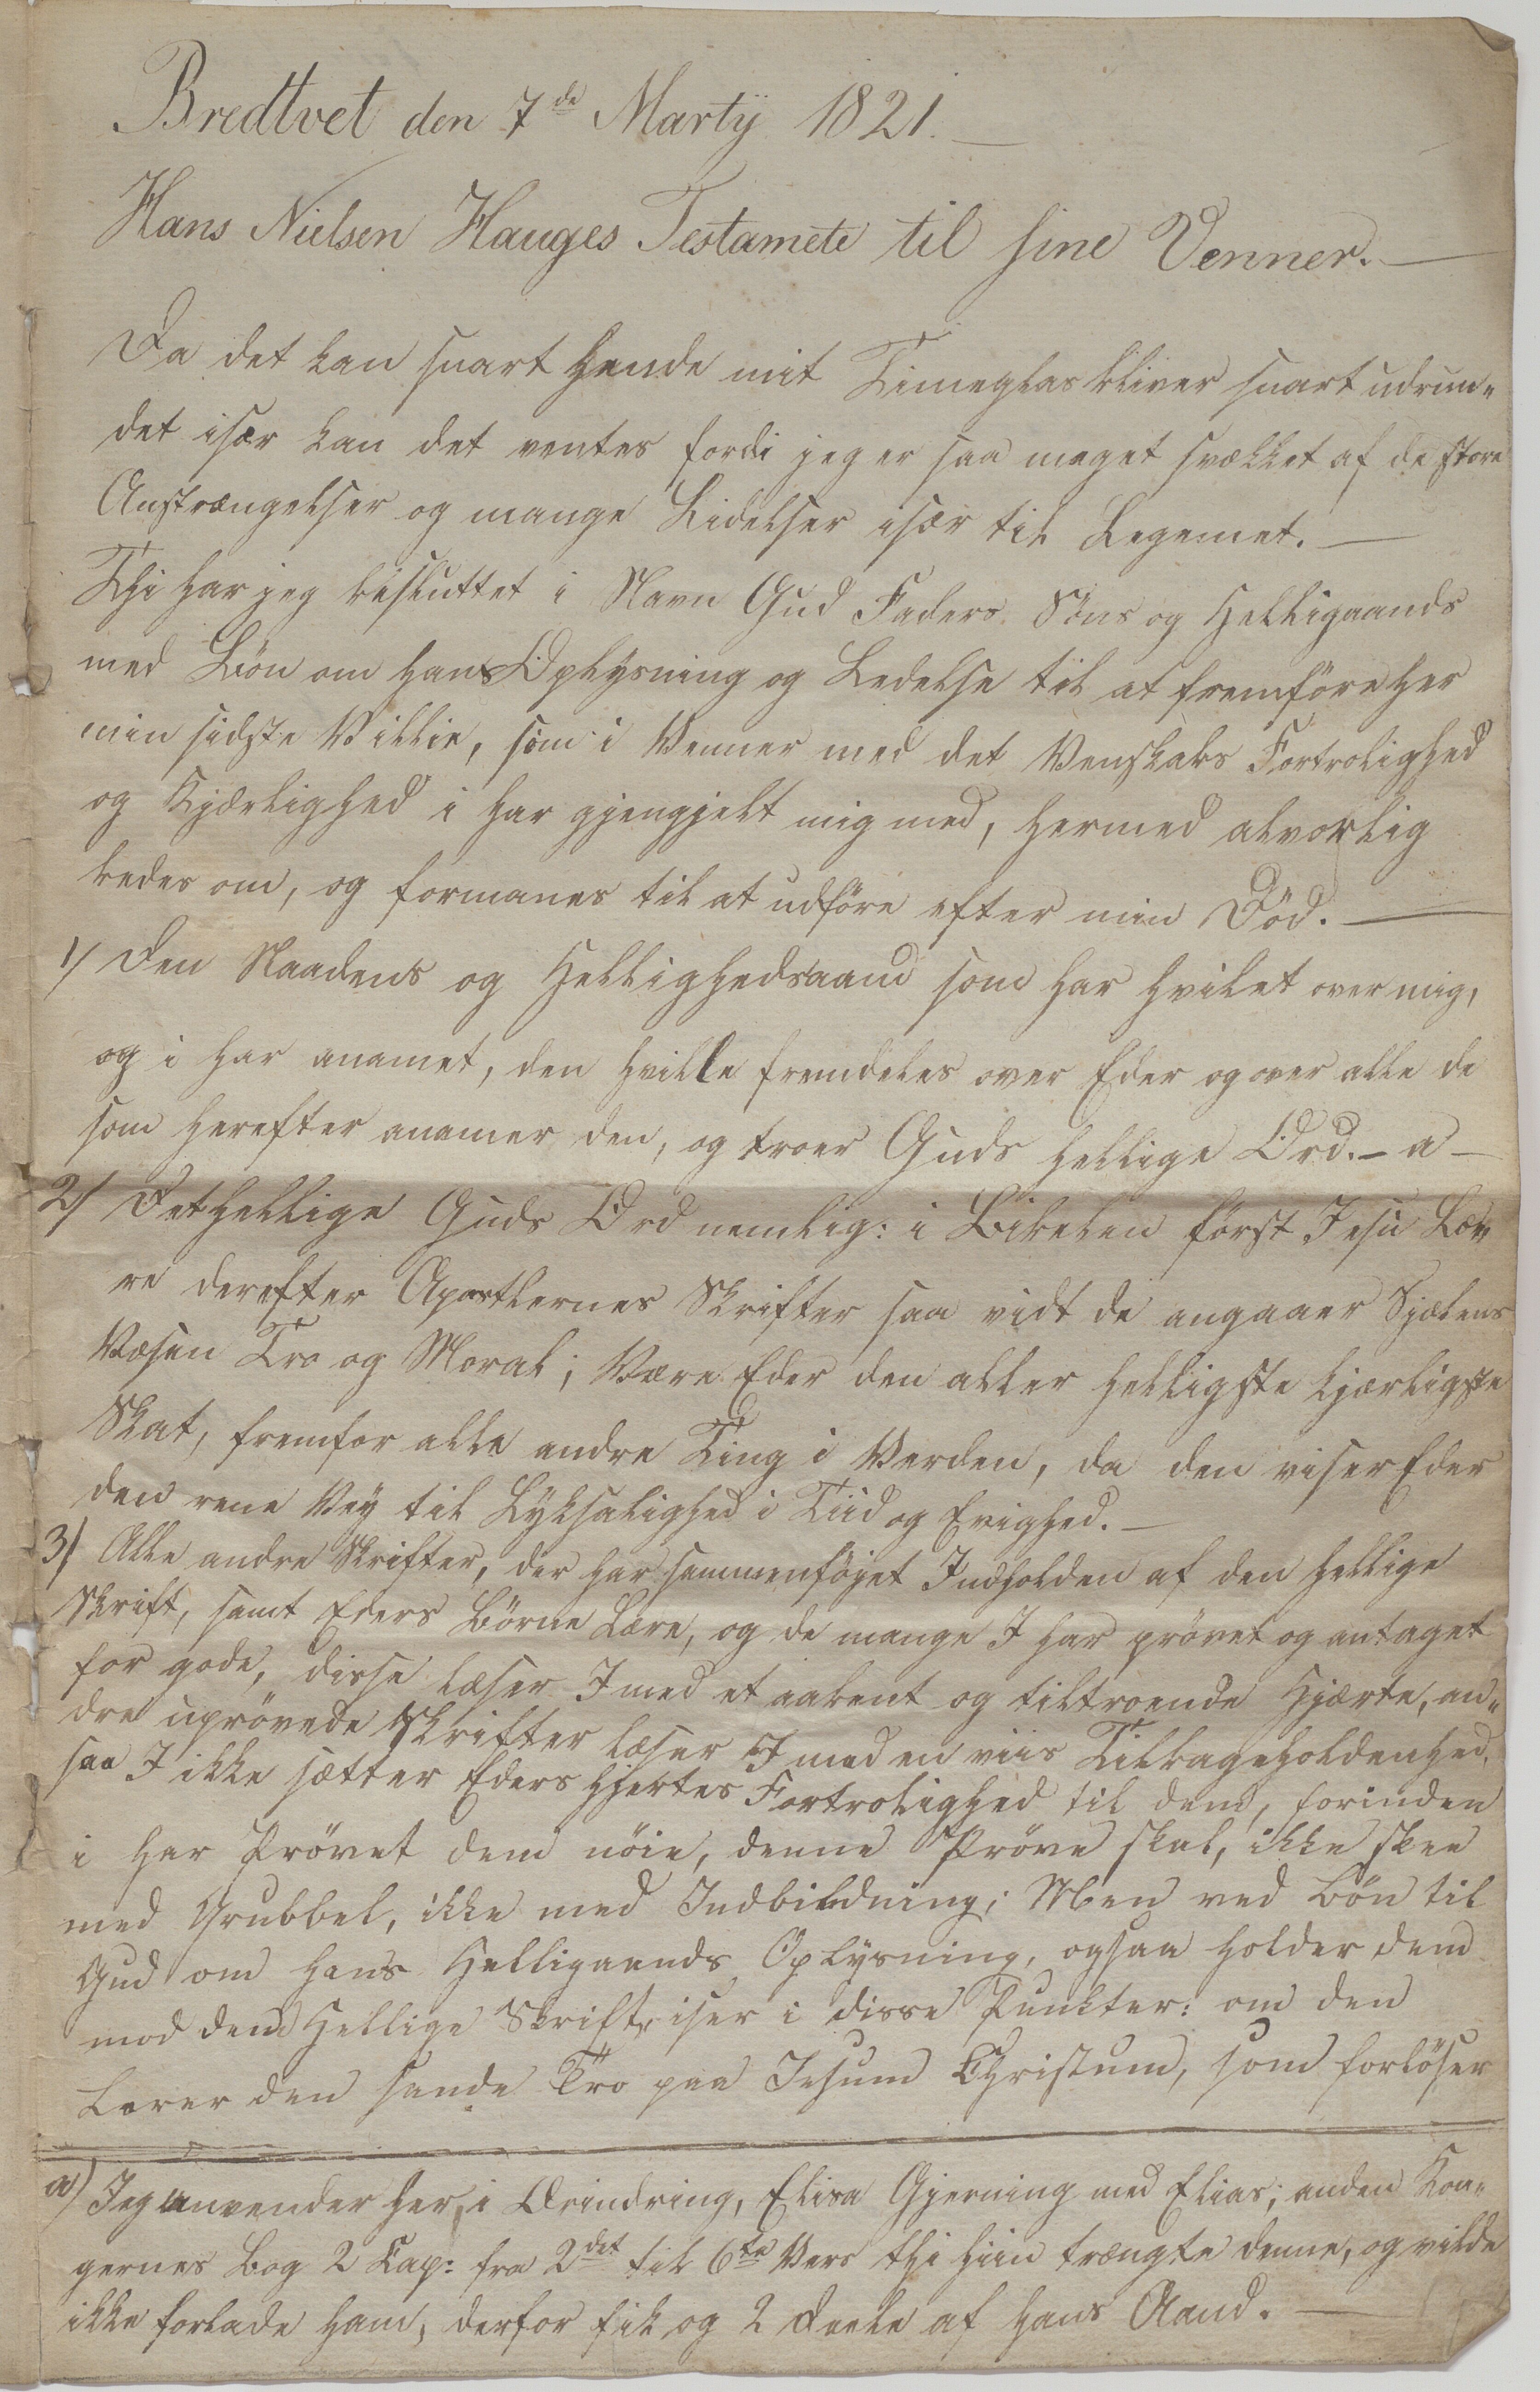 Bredtvet den 7de Martÿ 1821.
Hans Nielsen Hauges Testamete til sine Venner.
Da det kan snart hende mit Timeglas bliver snart udrun-
det især kan det ventes fordi jeg er saa meget svækket af de store
Anstrængelser og mange Lidelser især til Legemet.
Thi har jeg besluttet i Navn Gud Faders Søns og Helligaands
med Bön om hans Oplysning og Ledelse til at fremföre her
min sidste Villie, som i Venner med det Venskabs Fortrolighed
og Kjærlighed i har gjengjelt mig med, hermed alvorlig
bedes om, og formanes til at udföre efter min Död.
1/ Den Naadens og Hellighedsaand som har hvilet over mig,
og i har anamet, den hville fremdeles over Eder og over alle de
som herefter anamer den, og troer Guds hellige Ord. - a -
2/ Det hellige Guds Ord nemlig: i Bibelen först Jesu Læ-
re derefter Apostlernes Skrifter saa vidt de angaaer Sjælens
Væsen Tro og Moral; Være Eder den aller helligste kjærligste
Skat, fremfor alle andre Ting i Verden, da den viser Eder
den rene Vey til Lyksalighed i Tiid og Evighed.
3/ Alle andre Skrifter, der har sammenföjet Indholden af den hellige
Skrift, samt Eders Börne Lære, og de mange I har prövet og antaget
for gode, disse læser I med et aabent og tiltroende Hjærte, an-
dre uprövede Skrifter læser I med en viis Tilbageholdenhed,
saa I ikke sætter Eders Hjertes Fortrolighed til dem, forinden
i har Prövet dem nöie, denne Pröve skal, ikke skee
med Grubbel, ikke med Indbildning; Men ved Bön til
Gud om hans Helligaands Oplysning, ogsaa holder dem
mod den Hellige Skrift, iser i disse Punkter: om den
Lærer den sande Tro paa Jesum Christum, som forlöser
a) Jeg anvender her, i Erindring, Elisa Gjerning med Elias; anden Kon-
gernes Bog 2 Cap: fra 2det til 6te Vers thi hiin trængte denne, og vilde
ikke forlade ham, derfor fik og 2 Deele af hans Aand.